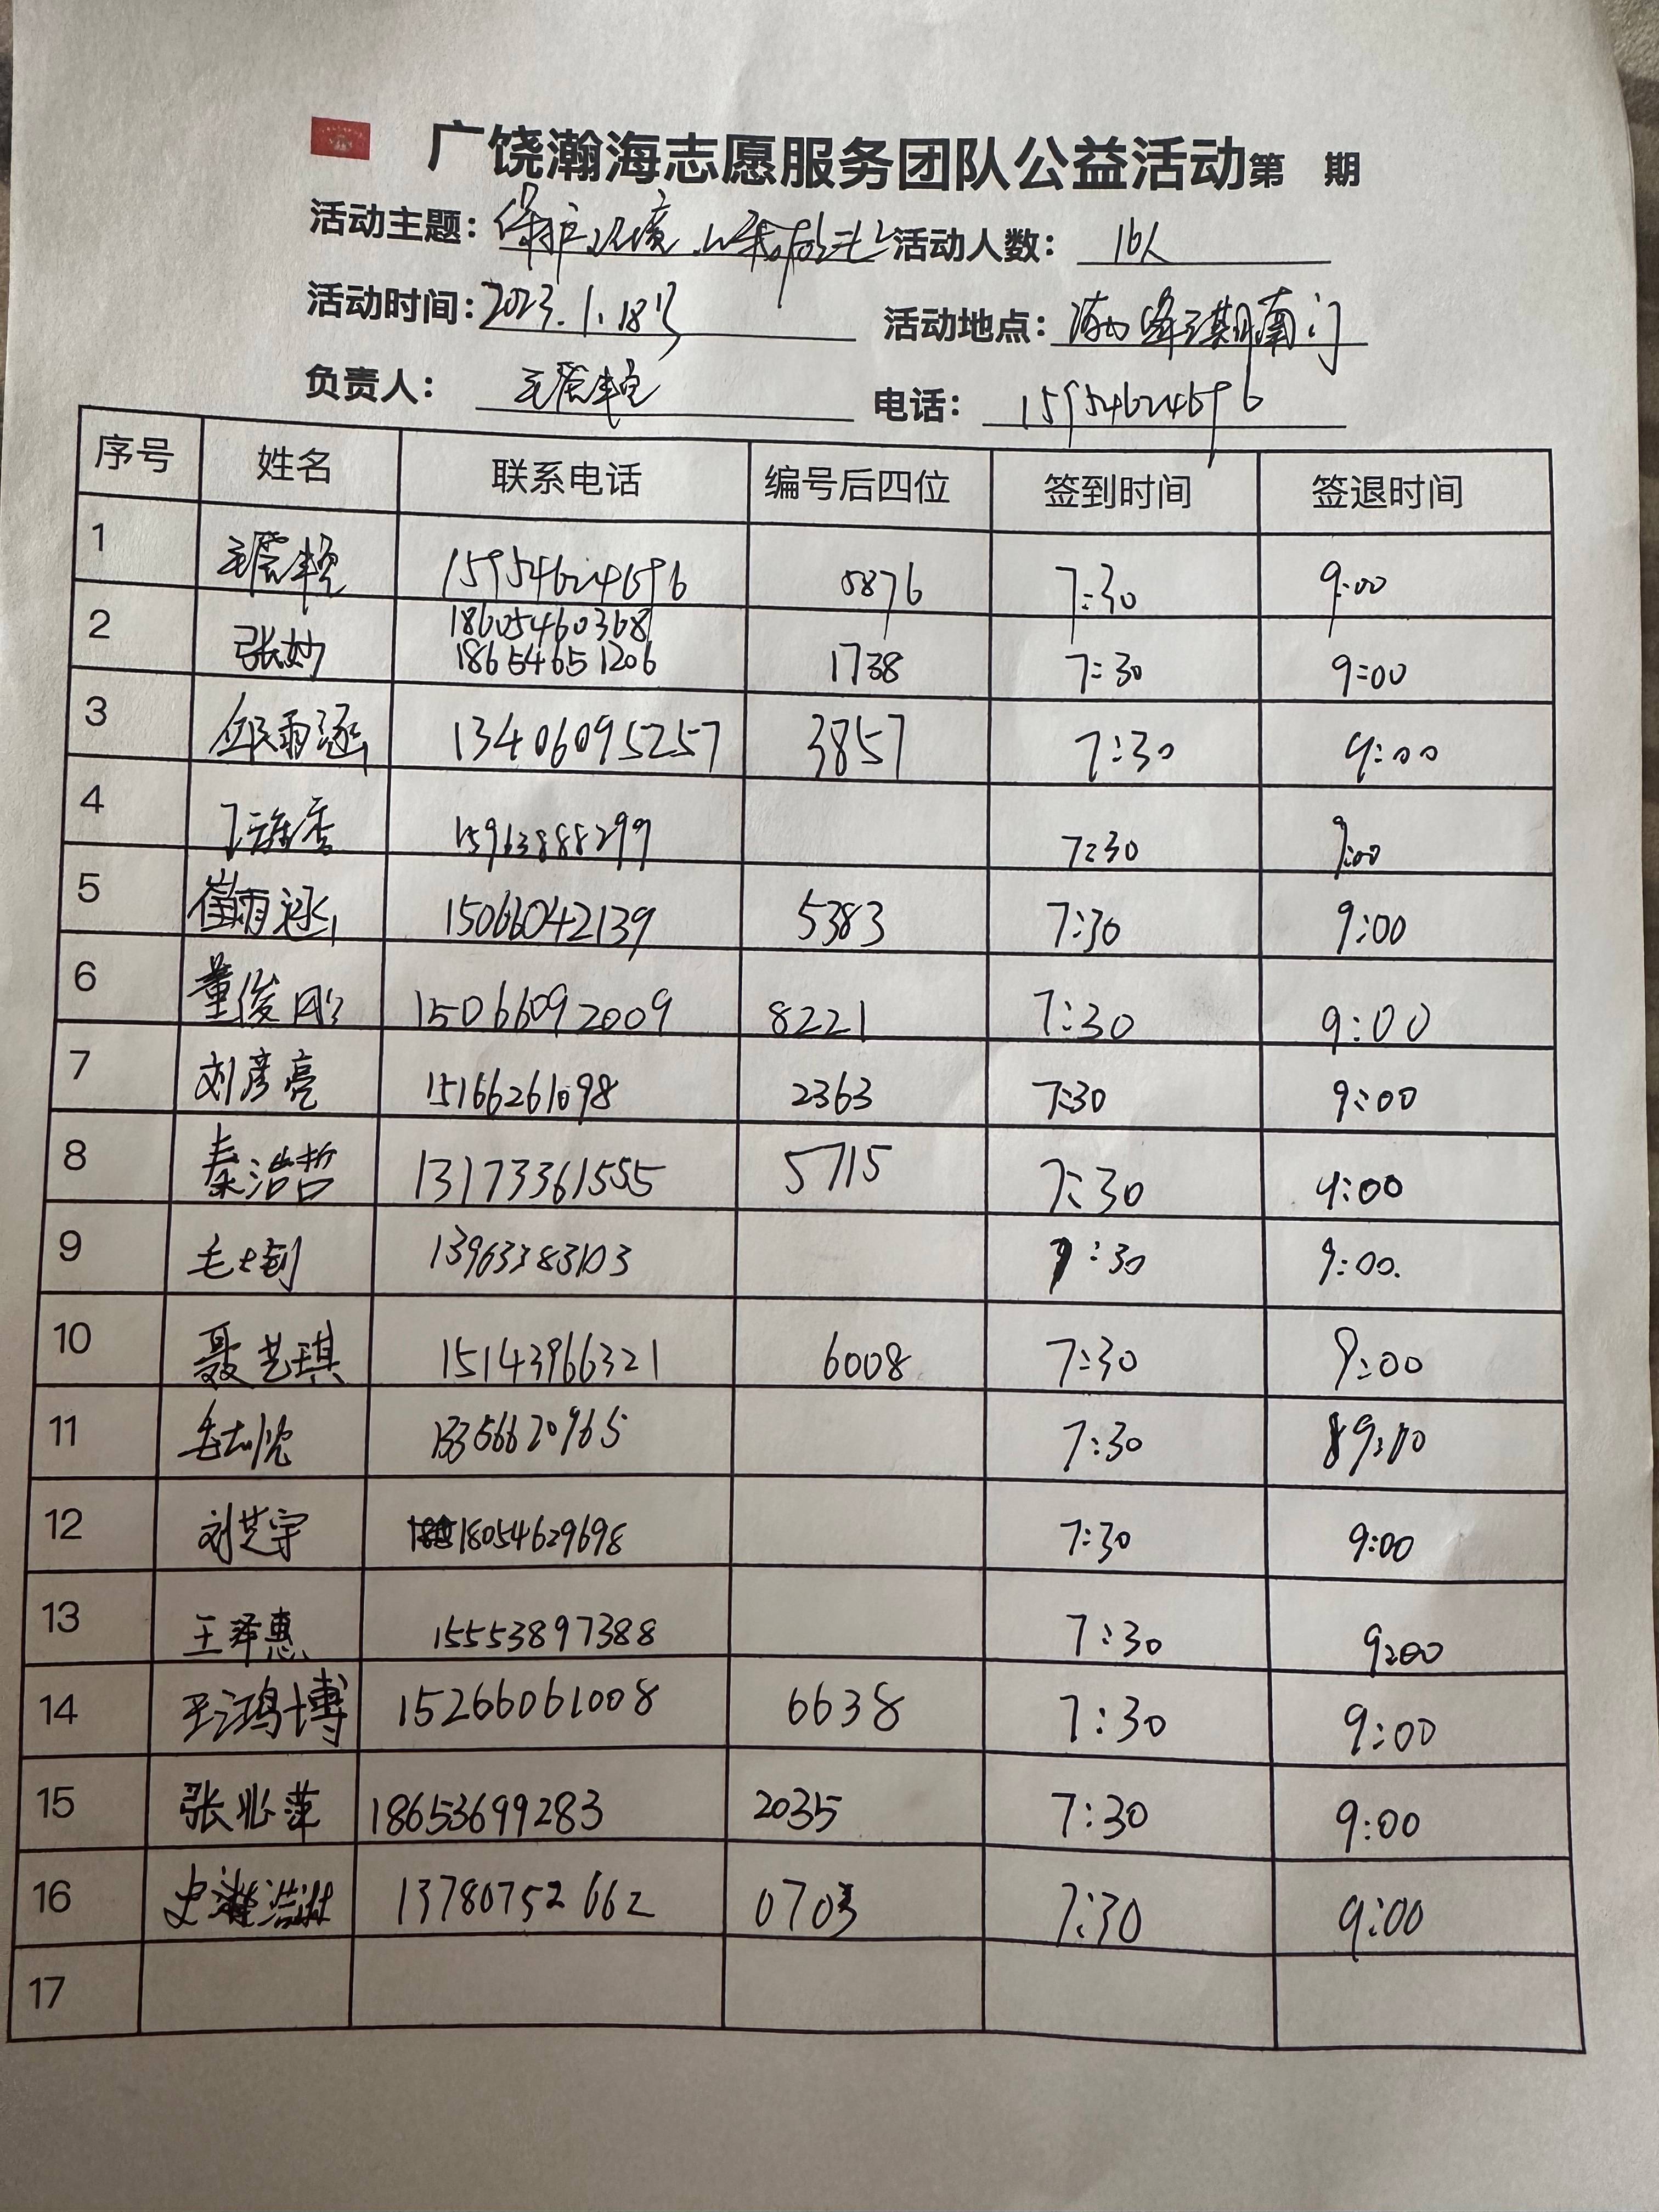 广饶瀚海志愿服务团队公益活动第 期
活动主题：保护环境 活动人数：16人
活动时间：2023.1.18号 活动地点：三期南门
负责人： 电话：15954624696
序号 姓名 联系电话 编号后四位 签到时间 签退时间
1 15954624696 0876 7:30 9:00
2 张妙 18605460368 18654651206 1738 7:30 9:00
3 邱雨涵 13406095257 3857 7:30 9:00
4 15963888299 7:30 9:00
5 崔雨涵 15066042139 5383 7:30 9:00
6 董俊刚 15066092009 8221 7:30 9:00
7 刘彦亮 15166261098 2363 7:30 9:00
8 秦浩哲 13173361555 5715 7:30 9:00
9 13963383103 7:30 9:00.
10 聂艺琪 15143966321 6008 7:30 9:00
11 13356620965 7:30 9:00
12 刘芝宇 18054629698 7:30 9:00
13 王泽惠 15553897388 7:30 9:00
14 王鸿博 15266061008 6638 7:30 9:00
15 张兆萍 18653699283 2035 7:30 9:00
16 史 13780752662 0703 7:30 9:00
17